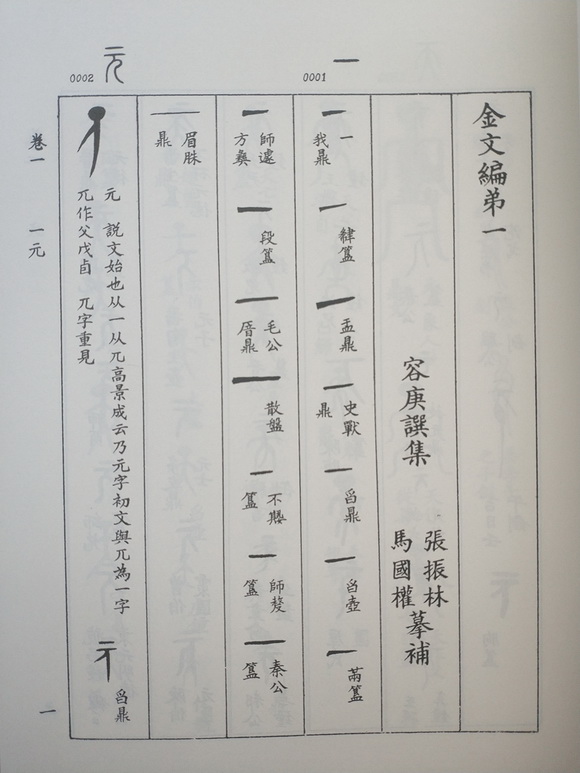 一
0001
元
0002
金文編弟一
容庚譔集
張振林
馬國權摹補
一
我鼎
𬚍簋
盂鼎
史獸
鼎
舀鼎
舀壺
㒼簋
師遽
方彝
段簋
毛公
𢊁鼎
散盤
不𡢁
簋
師𠩺
簋
秦公
簋
眉脒
鼎
元 說文始也从一从兀高景成云乃元字初文與兀為一字
兀作父戊卣 兀字重見
舀鼎
卷一 一元
一